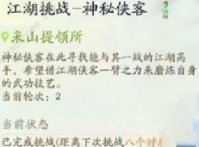 江湖挑战-神秘侠客
采山提领所
神秘侠客在此寻能与其一战的江湖高
手，希望借江湖侠客一臂之力来磨练自身
的武功技艺。
当前轮次：2
当前状态
已完成挑战(距离下次挑战八个时